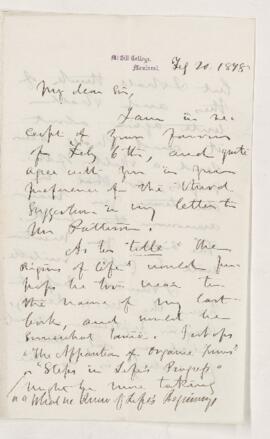 McGill College,
Montreal.
Feb 20. 1878
My dear Sir,
I am in re-
ceipt of your favour
of Feby 6th, and quite
agree with you in your
preference of the third
suggestion in my letter to
Mr Pattison.
As to title "The
Origins of Life" would per-
haps be too near to
the name of my last
book, and would be
somewhat tame. Perhaps
"The Apparition of Organic Forms"
or "Steps in Life's Progress"
might be more taking
or "What we Know of Life's Beginnings